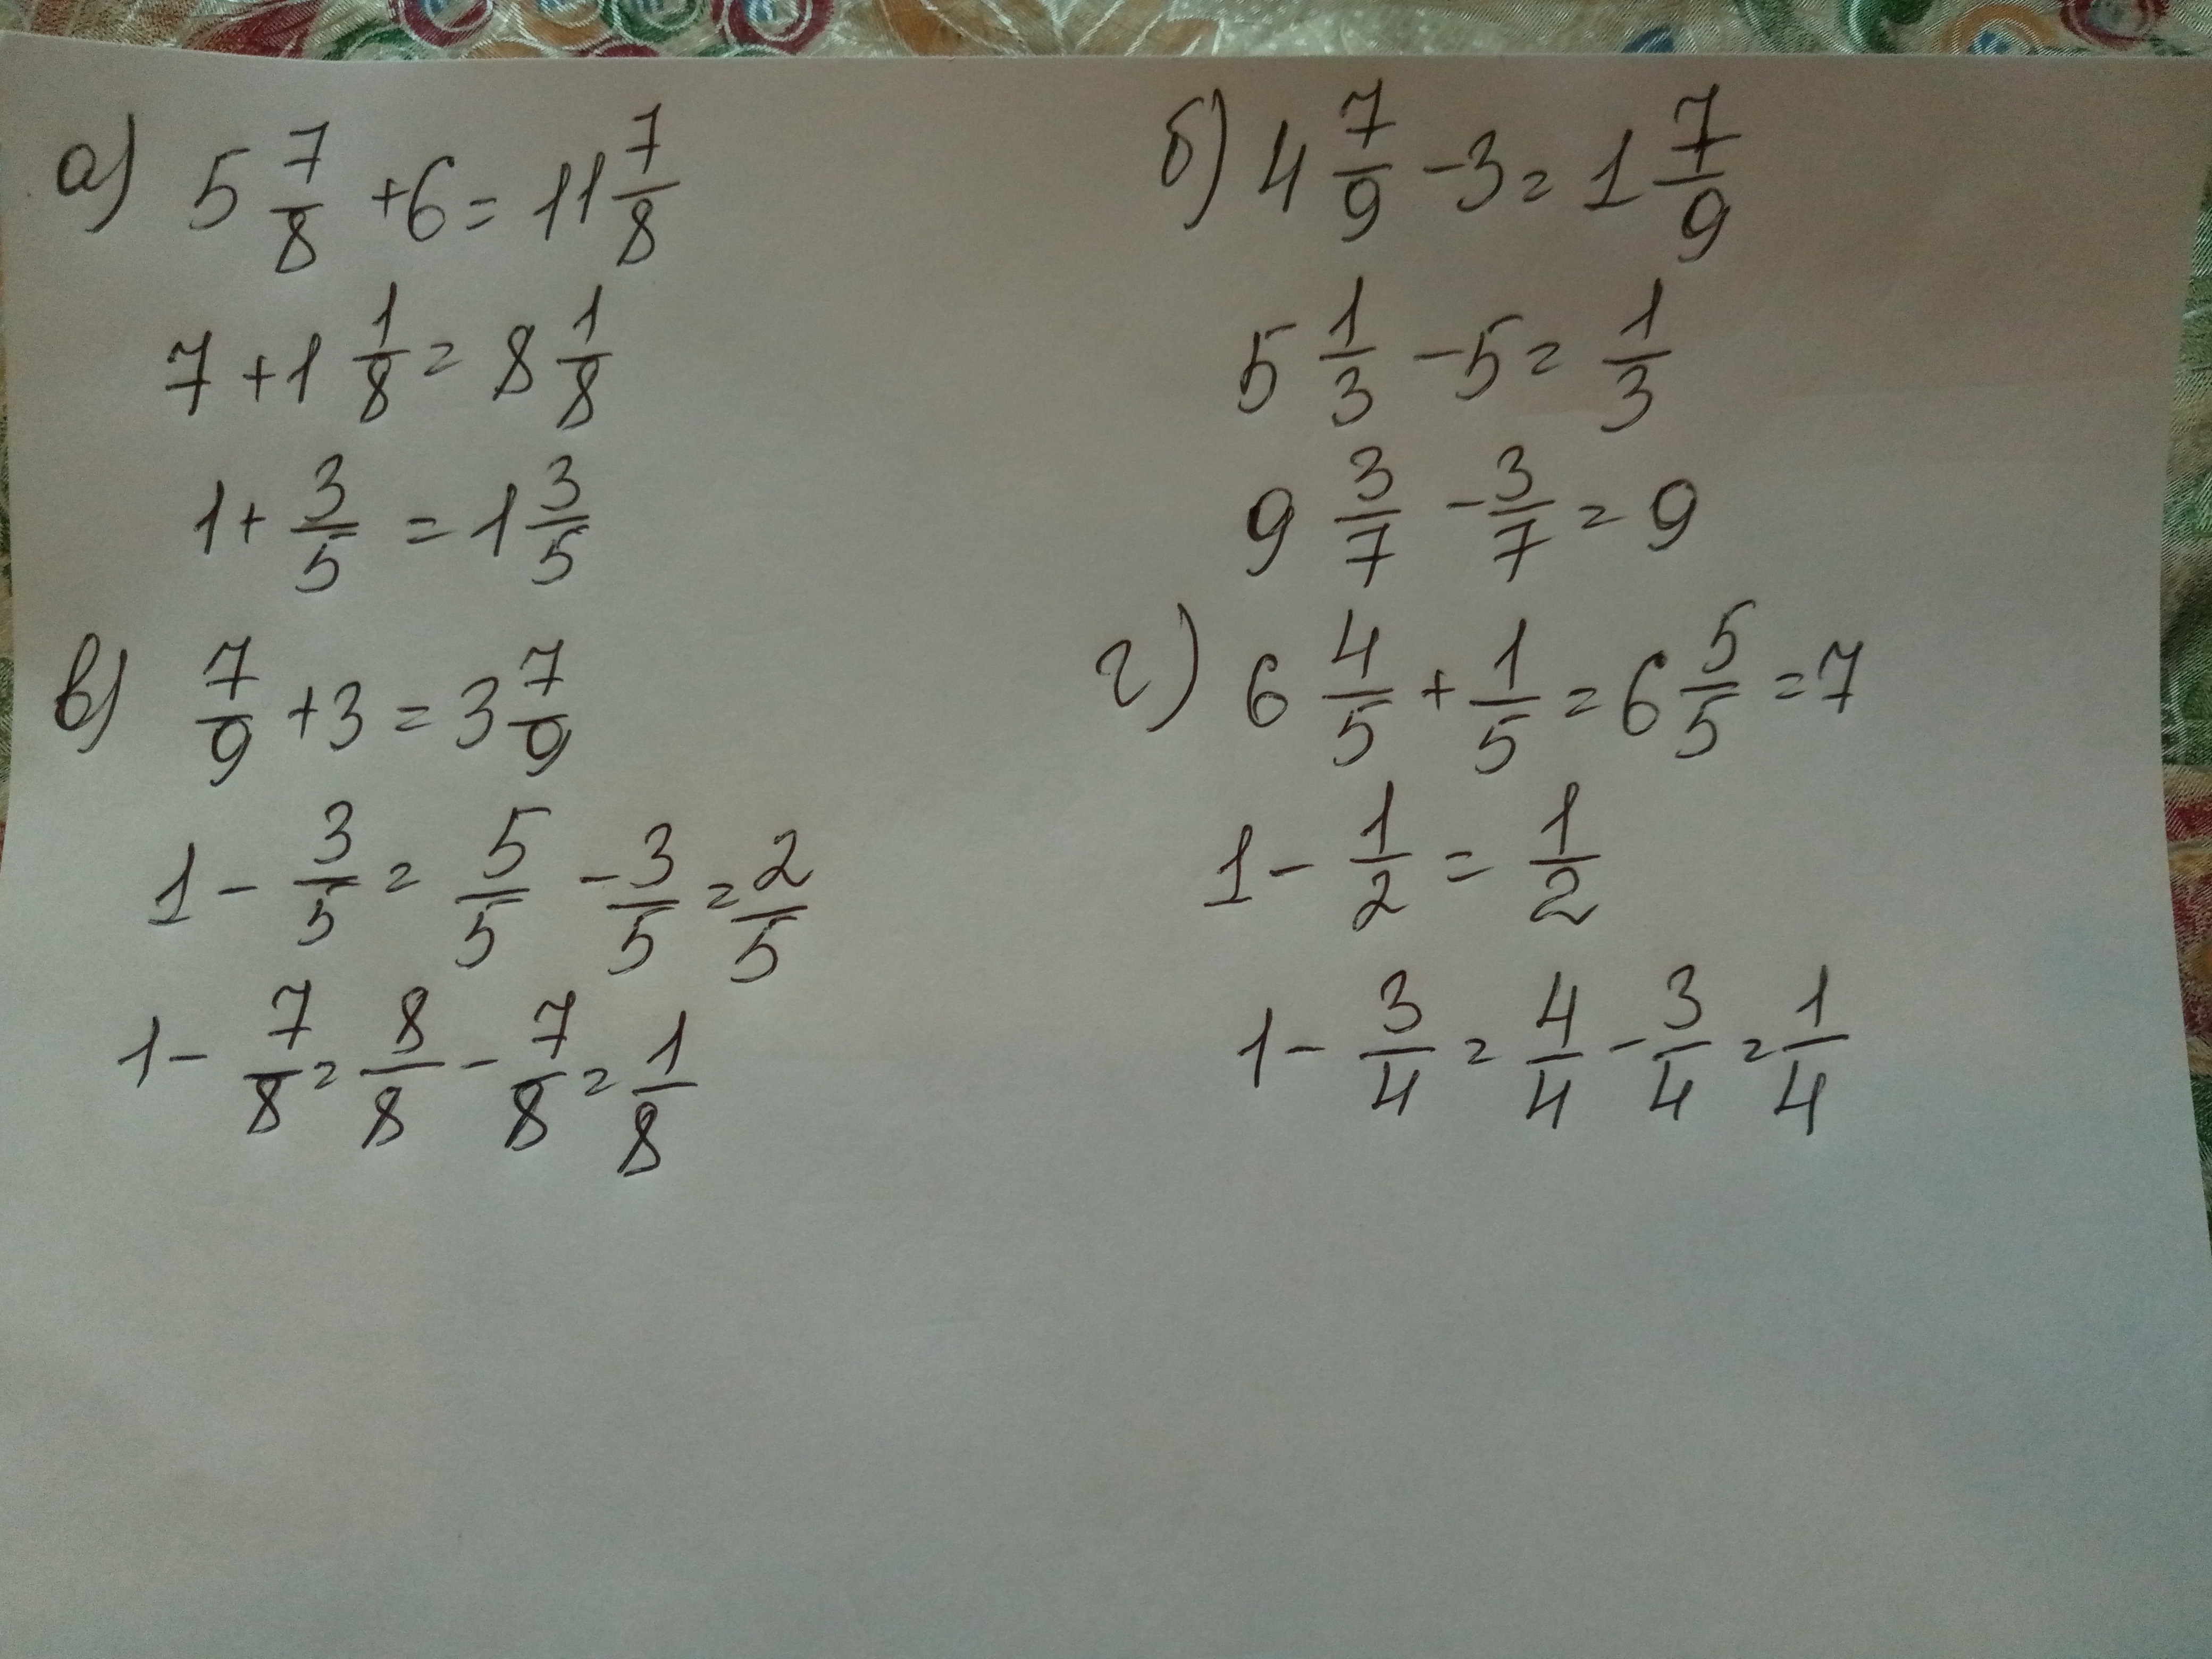 а) 5 7/8 + 6 = 11 7/8
7 + 1 1/8 = 8 1/8
1 + 3/5 = 1 3/5
в) 7/9 + 3 = 3 7/9
1 - 3/5 = 5/5 - 3/5 = 2/5
1 - 7/8 = 8/8 - 7/8 = 1/8
б) 4 7/9 - 3 = 1 7/9
5 1/3 - 5 = 1/3
9 3/7 - 3/7 = 9
г) 6 4/5 + 1/5 = 6 5/5 = 7
1 - 1/2 = 1/2
1 - 3/4 = 4/4 - 3/4 = 1/4